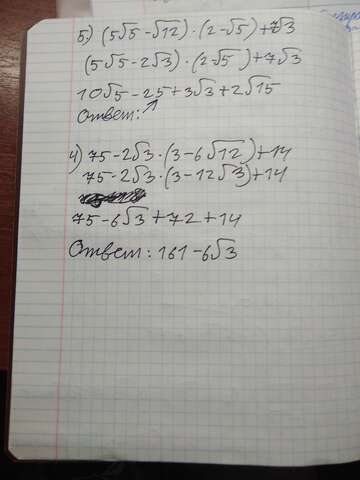 5) (5√5-√12)·(2-√5)+7√3
(5√5-2√3)·(2-√5)+7√3
10√5-25+3√3+2√15
Ответ:
4) 75-2√3·(3-6√12)+14
75-2√3·(3-12√3)+14
75-6√3+72+14
Ответ: 161-6√3